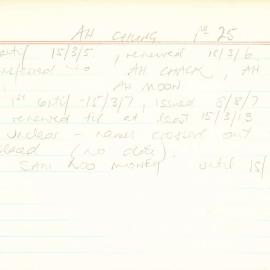 AH CHUNG 1st 25
until 15/3/5, renewed 15/3/6
to AH CHACK, AH
AH MOON
1st until -15/3/7, issued 8/8/7
renewed til at least 15/3/13
unclear - names crossed out
(no date).
SAM KOO MONEY until 15/